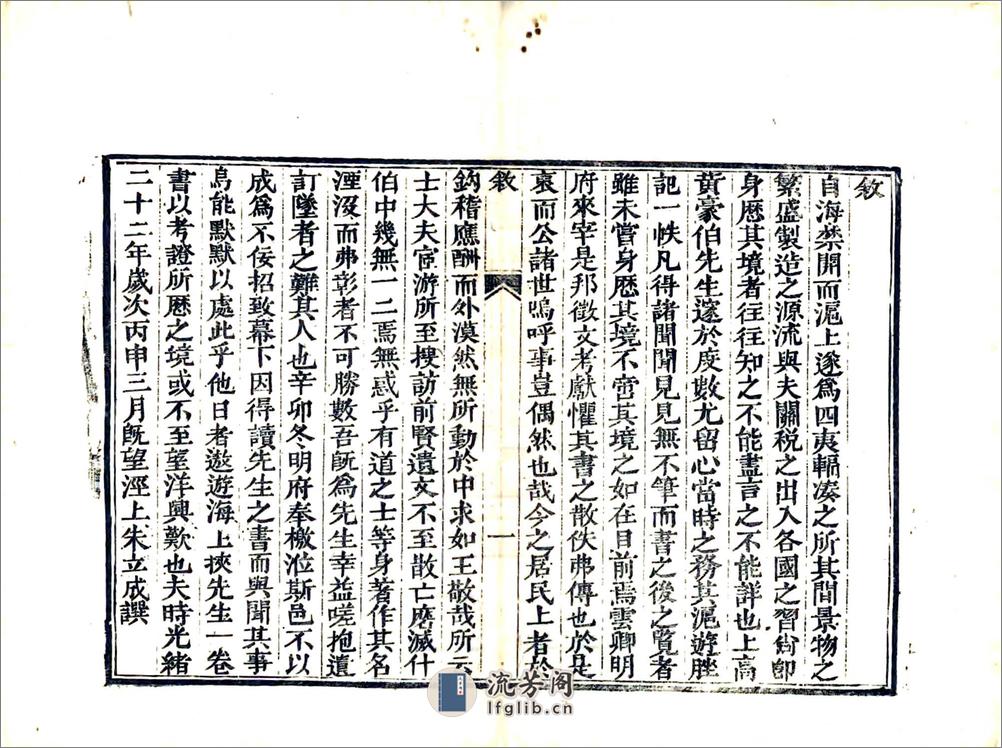 敘
自海禁開而滬上遂爲四夷輻湊之所其間景物之
繁盛製造之源流與夫關税之出入各國之習尙卽
身歷其境者往往知之不能盡言之不能詳也上高
黃豪伯先生邃於度數尤留心當時之務其滬遊脞
記一帙凡得諸聞聞見見無不筆而書之後之覽者
雖未嘗身歷其境不啻其境之如在目前焉雲卿明
府來宰是邦徵文考獻懼其書之散佚弗傳也於是
哀而公諸世嗚呼事豈偶然也哉今之居民上者於
敘
一
鈎稽應酬而外漠然無所動於中求如王敬哉所云
士大夫宦游所至搜訪前賢遺文不至散亡磨滅什
伯中幾無一二焉無惑乎有道之士等身著作其名
湮沒而弗彰者不可勝數吾旣爲先生幸益嗟抱遺
訂墜者之難其人也辛卯冬明府奉檄涖斯邑不以
成爲不佞招致幕下因得讀先生之書而與聞其事
烏能默默以處此乎他日者遨遊海上挾先生一卷
書以考證所歷之境或不至望洋興歎也夫時光緒
二十二年歲次丙申三月旣望涇上朱立成譔
流芳阁
lfglib.cn